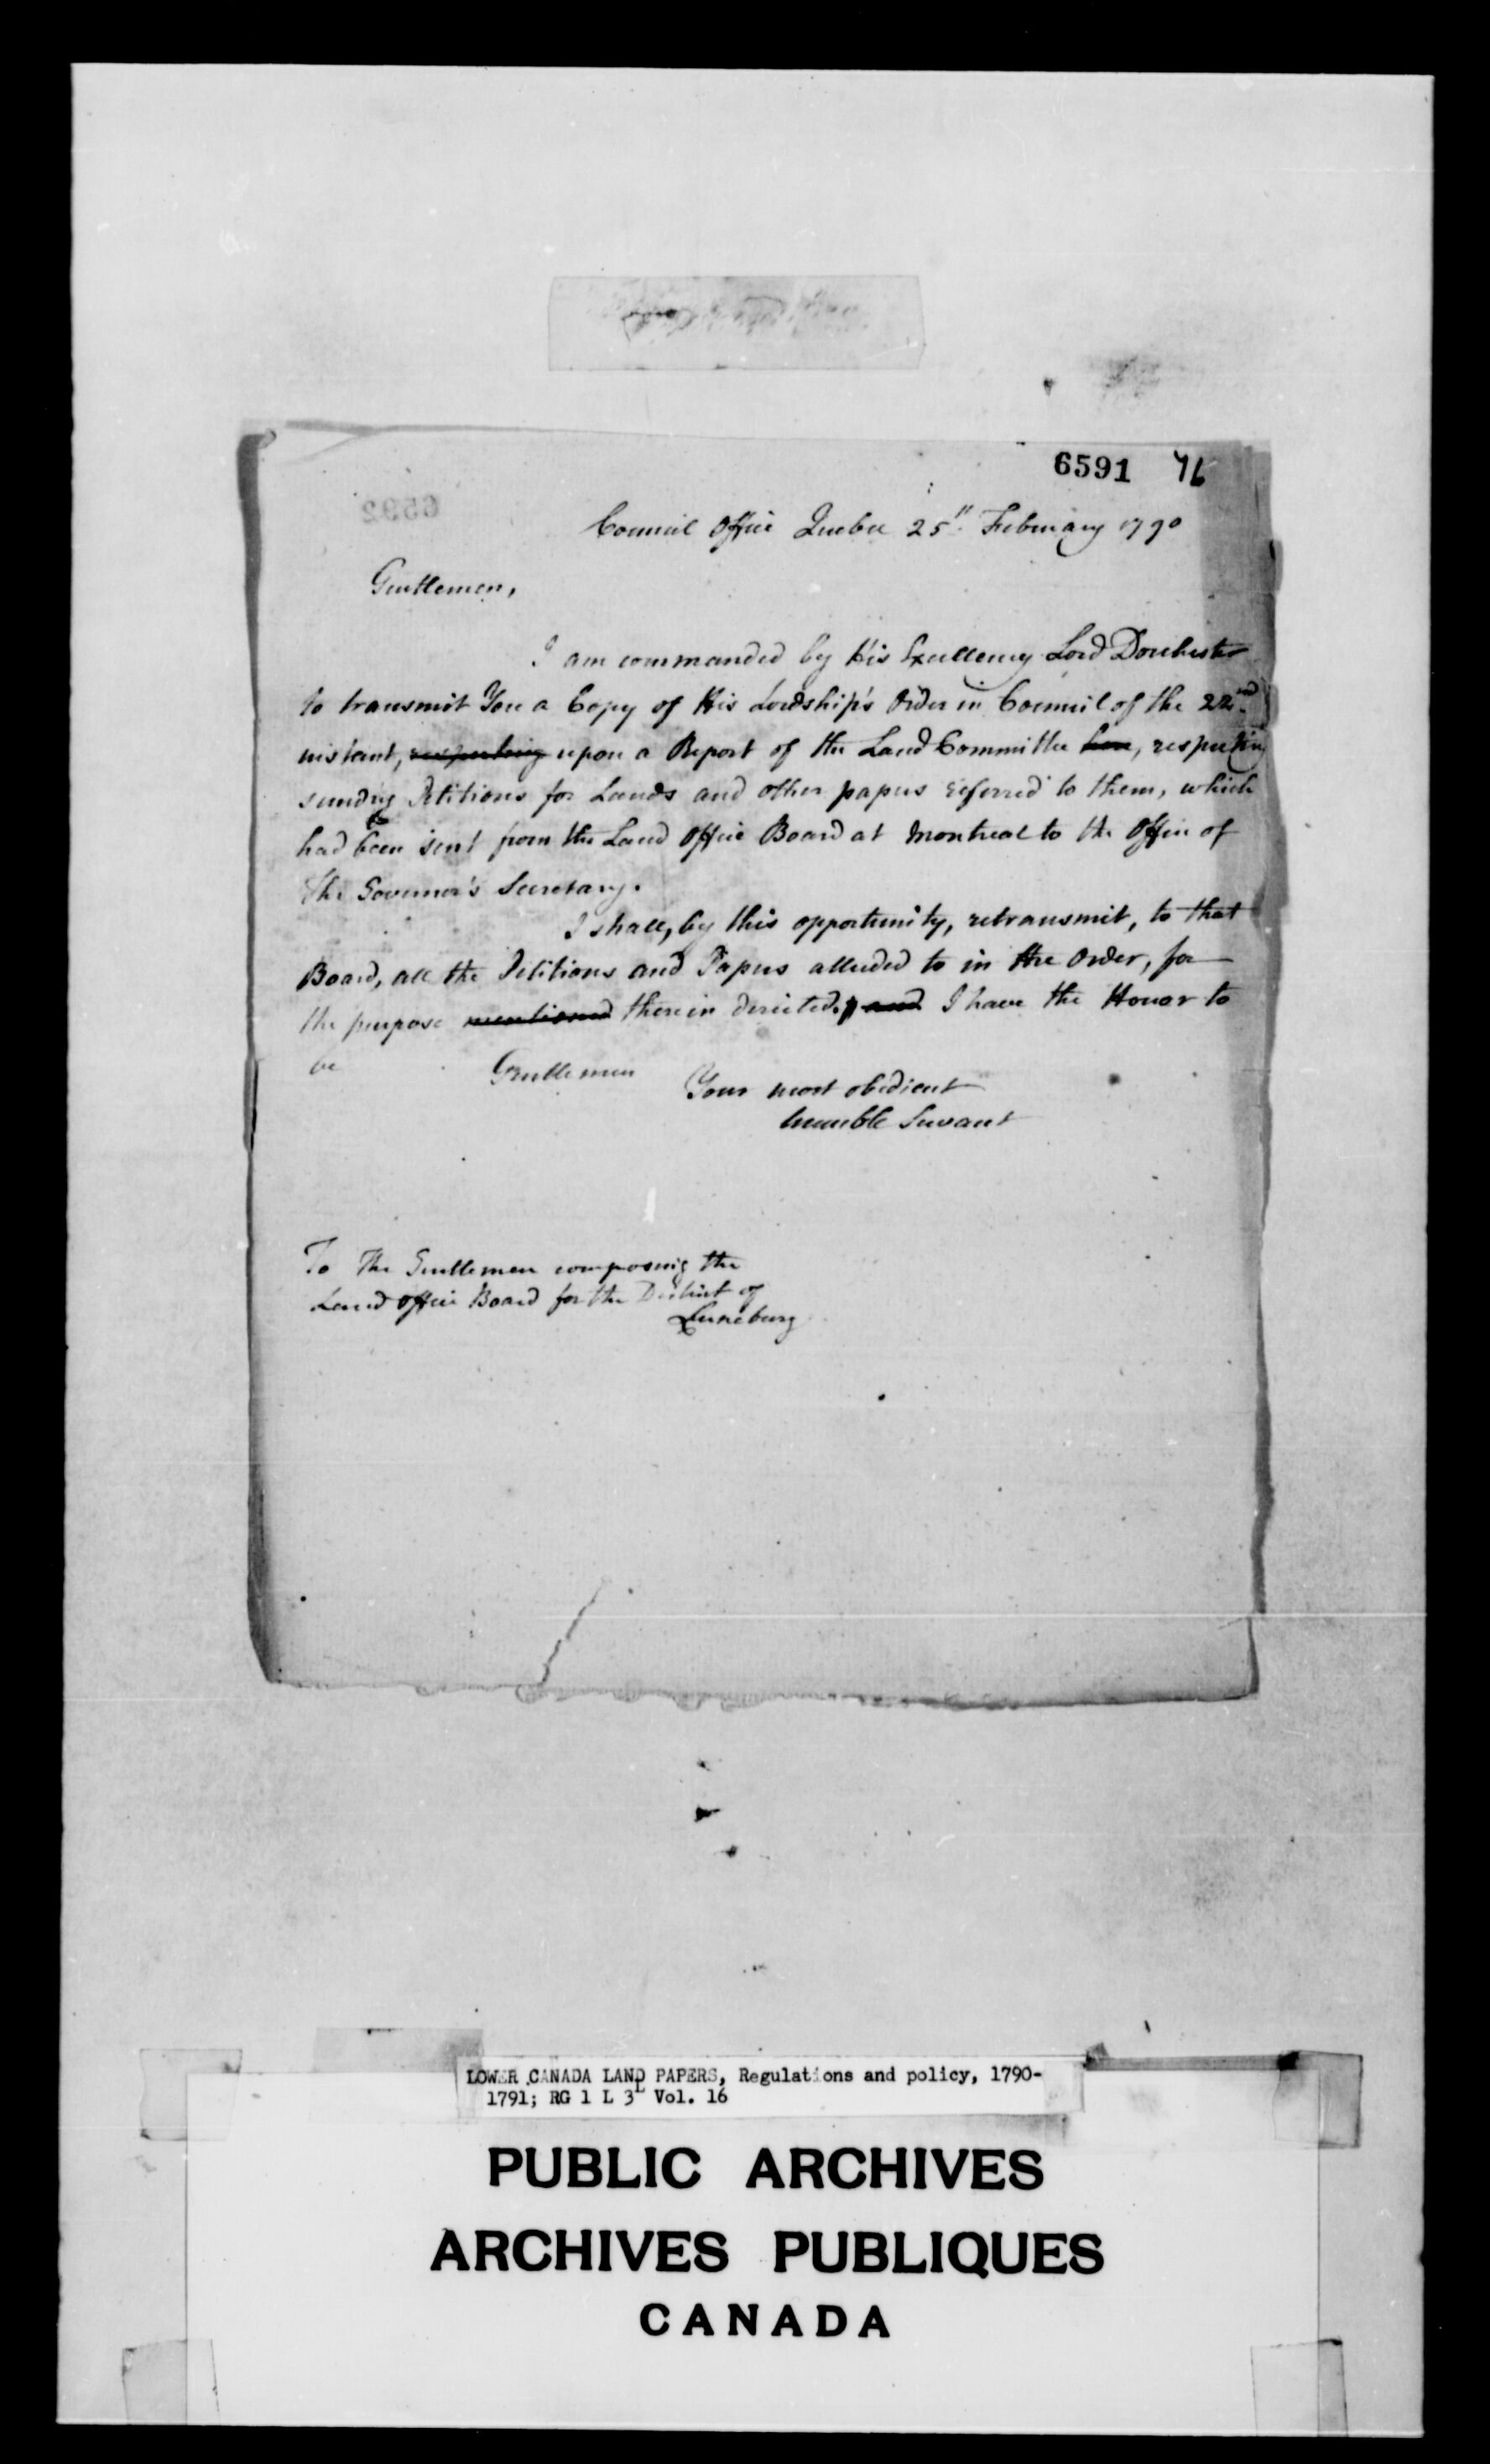 6591 76
Council Office Quebec 25th February 1790
Gentlemen,
I am commanded by His Excellency Lord Dorchester
to transmit You a Copy of His Lordship's Order in Council of the 22nd
instant, respecting upon a Report of the Land Committee here, respecting
sundry Petitions for Lands and other papers referred to them, which
had been sent from the Land Office Board at Montreal to the Office of
the Governor's Secretary.
I shall, by this opportunity, retransmit, to that
Board, all the Petitions and Papers alluded to in the Order, for
the purpose mentioned therein directed, and I have the Honor to
be Gentlemen
Your most obedient
humble Servant
To The Gentlemen composing the
Land Office Board for the District of
Luneburg
LOWER CANADA LAND PAPERS, Regulations and policy, 1790-
1791; RG 1 L 3L Vol. 16
PUBLIC ARCHIVES
ARCHIVES PUBLIQUES
CANADA